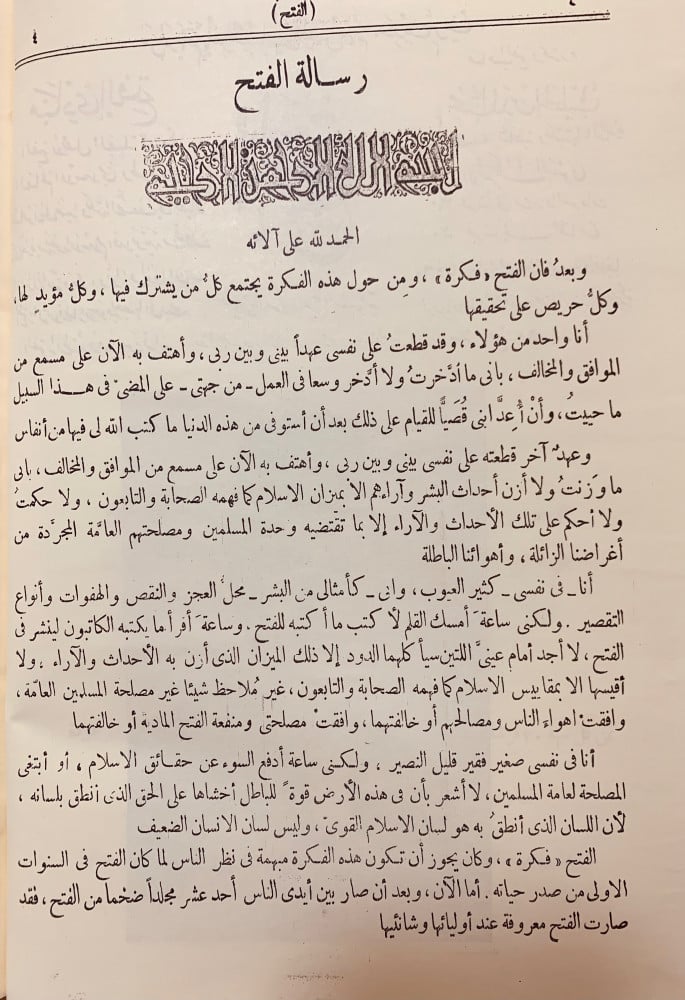 (الفتح)
٤
رسالة الفتح
بسم الله الرحمن الرحيم
الحمد لله على آلائه
وبعدُ فان الفتح «فكرة» ، ومن حول هذه الفكرة يجتمع كلُّ من يشترك فيها ، وكلُّ مؤيد لها،
وكلُّ حريص على تحقيقها
أنا واحد من هؤلاء ، وقد قطعتُ على نفسى عهداً بينى وبين ربى ، وأهتف به الآن على مسمع من
الموافق والمخالف ، بانى ما ادَّخرتُ ولا أدَّخر وسعا فى العمل ـ من جهتى ـ على المضىّ فى هــذا السبيل
ما حييتُ، وأنْ أُعِدَّ ابنى قُصَيًّا للقيام على ذلك بعد أن أستوفى من هذه الدنيا ما كتب الله لى فيها من أنفاس
وعهدٌ آخر قطعته على نفسى بينى وبين ربى ، وأهتف به الآن على مسمع من الموافق والمخالف ، بانى
ما وَزنتُ ولا أزن أحداث البشر وآراءهم الا بميزان الاسلام كما فهمه الصحابة والتابعون ، ولا حكمتُ
ولا أحكم على تلك الأحداث والآراء إلا بما تقتضيه وحدة المسلمين ومصلحتهم العامَّة المجرَّدة من
أغراضنا الزائلة ، وأهوائنا الباطلة
أنا ـ فى نفسى ـ كثير العيوب ، وانى ـ كأمثالى من البشر ـ محلُّ العجز والنقص والهفوات وأنواع
التقصير . ولكنى ساعةَ أمسك القلم لأكتب ما أكتبه للفتح ، وساعةَ أقرأ ما يكتبه الكاتبون لينشر فى
الفتح ، لا أجد أمام عينىَّ اللتين سيأكلهما الدود إلا ذلك الميزان الذى أزن به الأحداث والآراء ، ولا
أقيسها الا بمقاييس الاسلام كما فهمه الصحابة والتابعون ، غير مُلاحظ شيئا غير مصلحة المسلمين العامَّة ،
وافقتْ اهواء الناس ومصالحهم أو خالفتهما ، وافقتْ مصلحتى ومنفعة الفتح المادية أو خالفتهما
أنا فى نفسى صغير فقير قليل النصير ، ولكنى ساعة أدفع السوء عن حقائق الاسلام ، أو أبتغى
المصلحة لعامة المسلمين ، لا أشعر بأن فى هذه الأرض قوةً للباطل أخشاها على الحق الذى أنطق بلسانه ،
لأن اللسان الذى أنطقُ به هو لسان الاسلام القوىّ ، وليس لسان الانسان الضعيف
الفتح «فكرة» ، وكان يجوز أن تكون هذه الفكرة مبهمة فى نظر الناس لما كان الفتح فى السنوات
الاولى من صدر حياته . أما الآن ، وبعد أن صار بين أيدى الناس أحد عشر مجلداً ضخما من الفتح ، فقد
صارت الفتح معروفة عند أوليائها وشانئيها